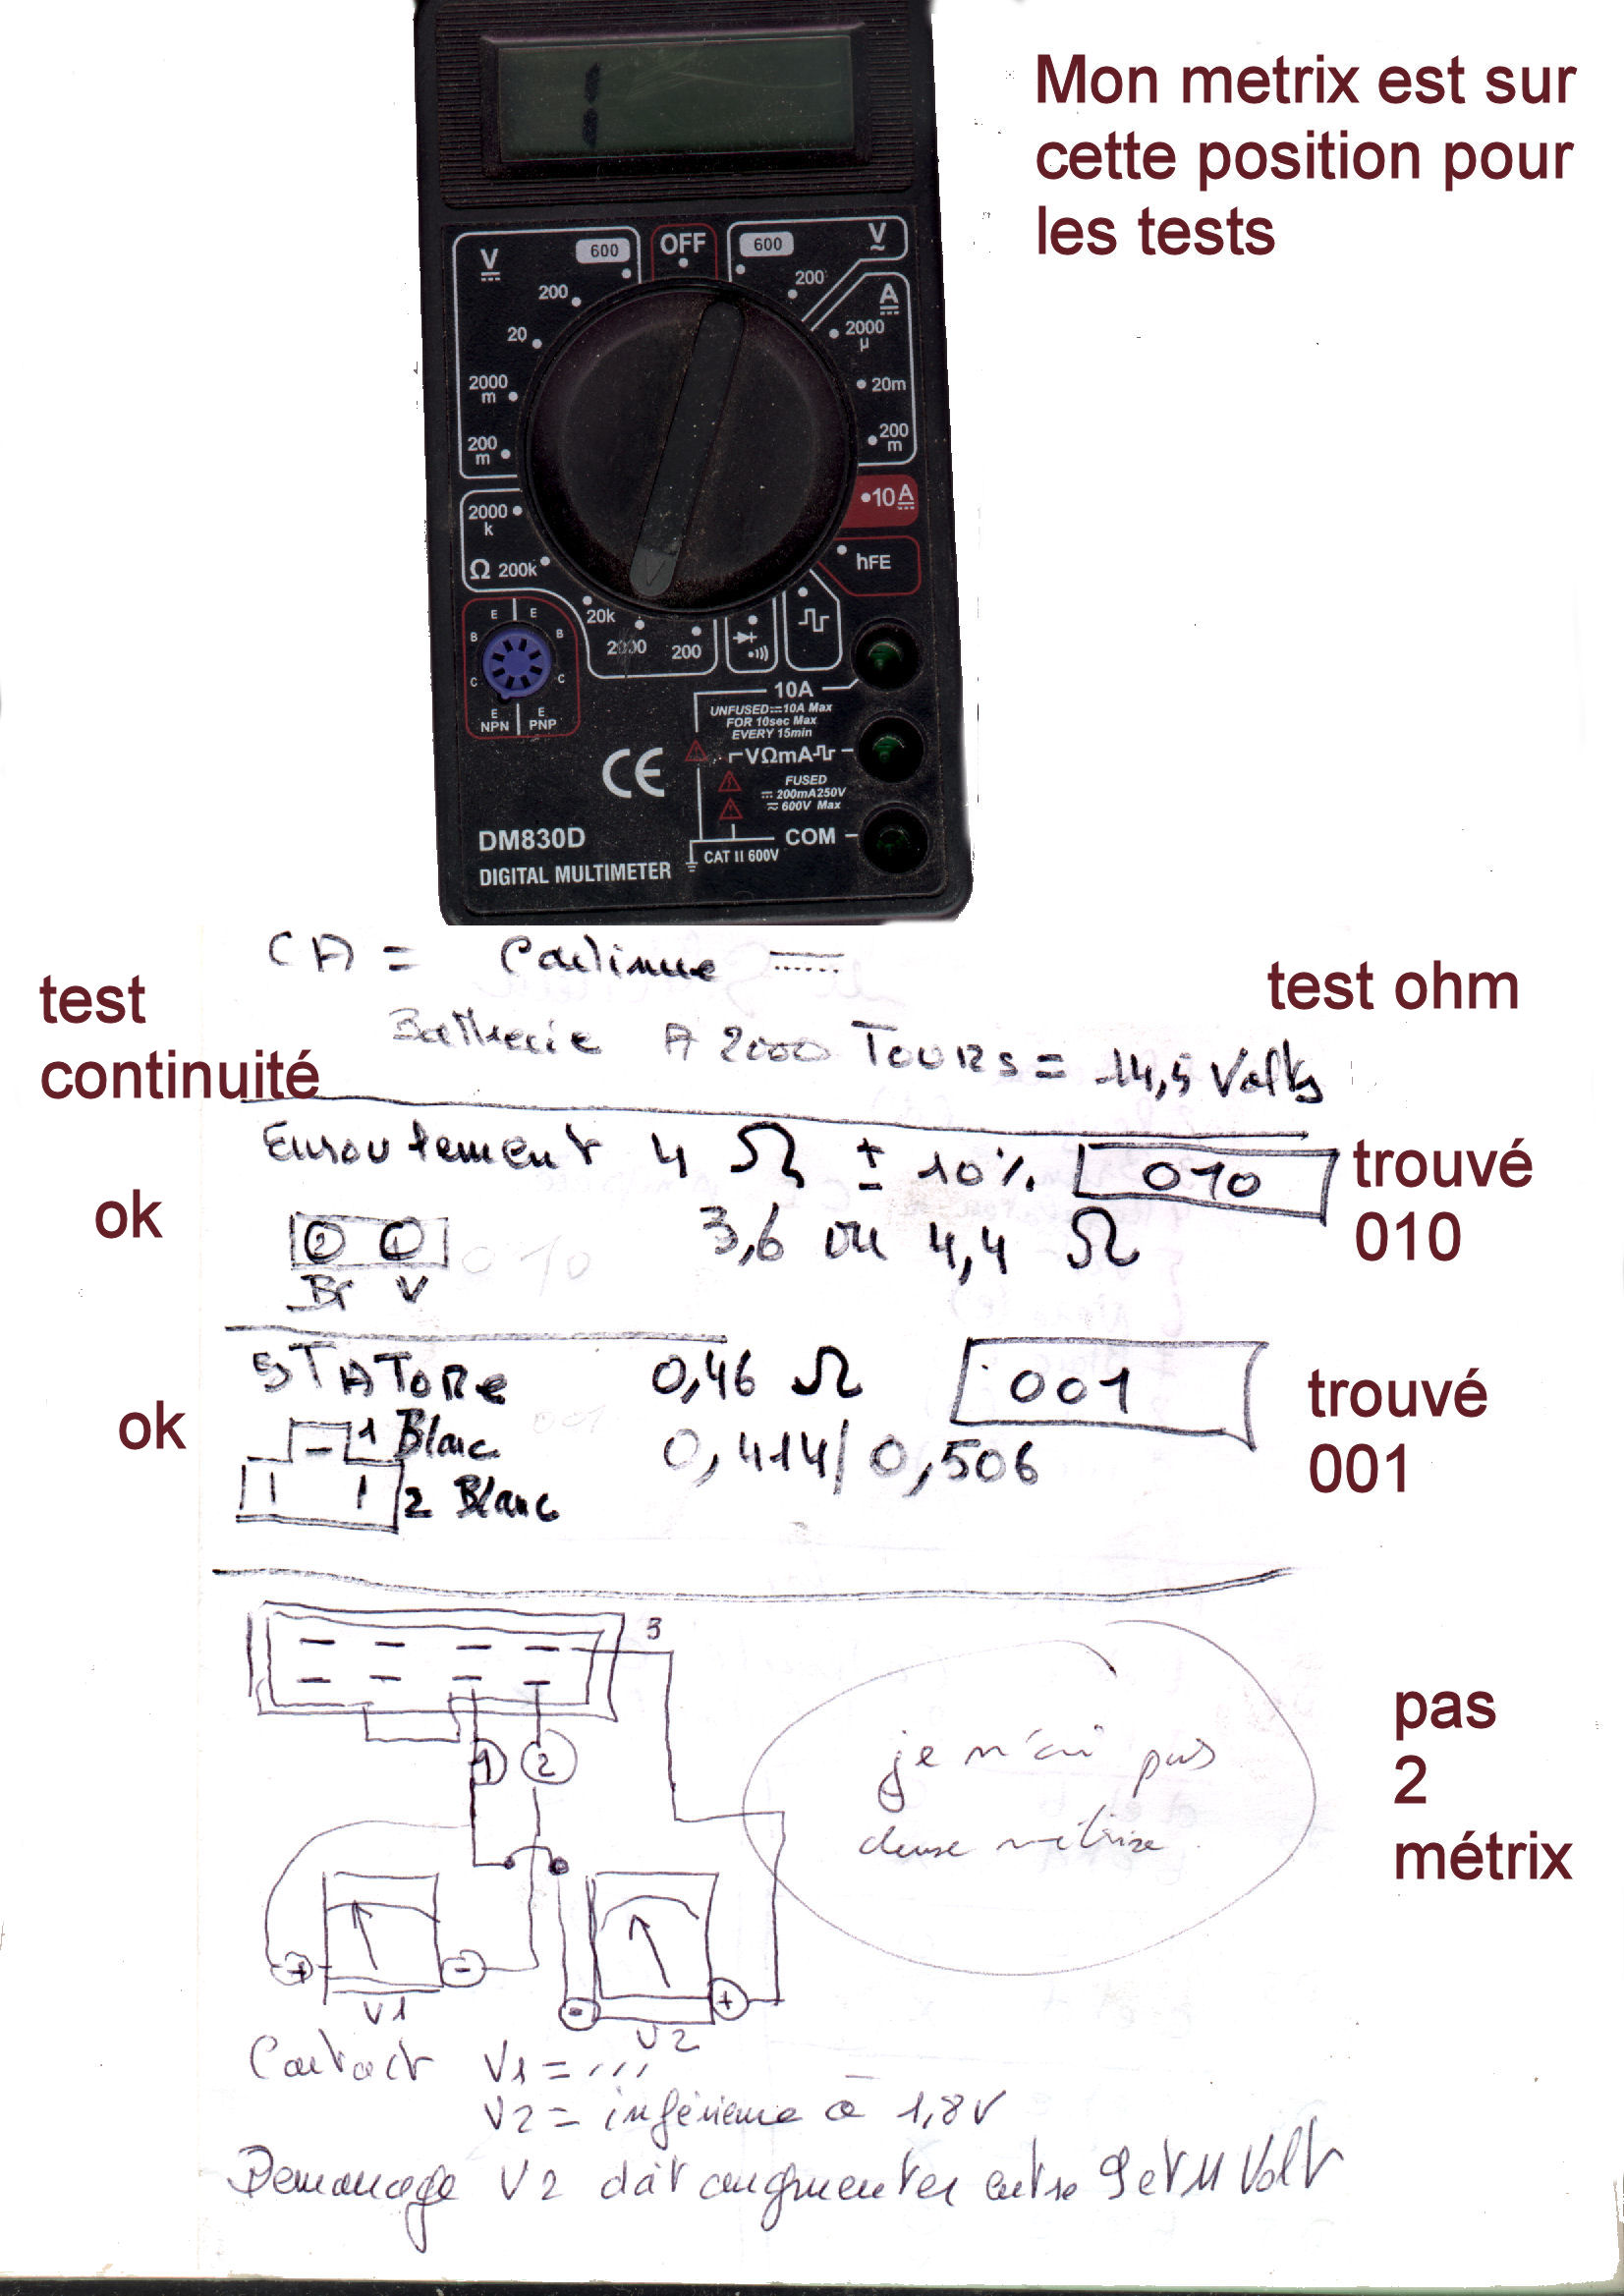 1
Mon metrix est sur
cette position pour
les tests
V
600
OFF
600
V
200
200
A
20
2000
µ
2000
m
20m
200
m
200
m
2000
k
10A
Ω 200k
hFE
20k
2000
200
E E
B B
C C
E E
NPN PNP
10A
UNFUSED 10A Max
FOR 10sec Max
EVERY 15min
VΩmA
FUSED
200mA250V
600V Max
CE
DM830D
COM
CAT II 600V
DIGITAL MULTIMETER
CA = Continue
test
continuité
test ohm
Batterie A 2000 TOURS = 14,5 Volts
Enroulement 4 Ω ± 10% 010
trouvé
010
ok
3,6 ou 4,4 Ω
010
Br V
STATORe 0,46 Ω 001
trouvé
001
ok
1 Blanc 001
0,414/0,506
2 Blanc
3
1 2
je n'ai pas
deux métrixe
pas
2
métrix
+ -
V1
- +
V2
Contact V1 = ...
V2 = inférieure a 1,8V
Demarage V2 doit augmenter entre 9 et 11 Volt